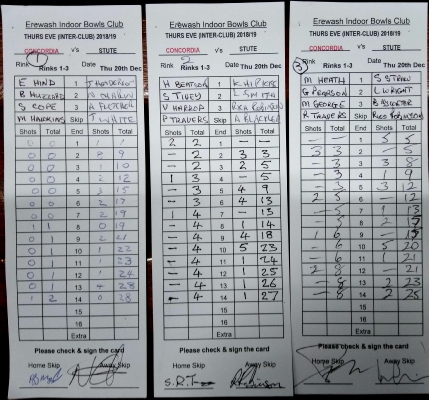 Erewash Indoor Bowls Club
THURS EVE (INTER-CLUB) 2018/19
CONCORDIA v's STUTE
Rink 1 Rinks 1-3 Date Thu 20th Dec
E HIND 1
B 2
S COPE 3 A
M HAWKINS Skip T WHITE
Shots Total End Shots Total
0 0 1 1 1
0 0 2 8 9
0 0 3 1 10
0 0 4 2 12
0 0 5 3 15
0 0 6 2 17
0 0 7 2 19
1 1 8 0 19
0 1 9 2 21
0 1 10 1 22
0 1 11 1 23
0 1 12 1 24
0 1 13 4 28
1 2 14 0 28
15
16
Extra
Please check & sign the card
Home Skip Away Skip
Erewash Indoor Bowls Club
THURS EVE (INTER-CLUB) 2018/19
CONCORDIA v's STUTE
Rink 2 Rinks 1-3 Date Thu 20th Dec
H BEATON 1
S 2 L SMITH
V HARROP 3 ROBINSON
P TRAVERS Skip A
Shots Total End Shots Total
2 2 1 — —
— 2 2 3 3
— 2 3 2 5
1 3 4 — 5
— 3 5 4 9
— 3 6 4 13
1 4 7 — 13
— 4 8 1 14
— 4 9 4 18
— 4 10 5 23
— 4 11 1 24
— 4 12 1 25
— 4 13 1 26
— 4 14 1 27
15
16
Extra
Please check & sign the card
Home Skip Away Skip
Erewash Indoor Bowls Club
THURS EVE (INTER-CLUB) 2018/19
CONCORDIA v's STUTE
Rink 3 Rinks 1-3 Date Thu 20th Dec
M HEATH 1 S STRAW
G PEARSON 2 L WRIGHT
M GEORGE 3 B
R TRAVERS Skip ROBINSON
Shots Total End Shots Total
— — 1 5 5
3 3 2 — 5
— 3 3 3 8
— 3 4 1 9
— 3 5 3 12
2 5 6 — 12
— 5 7 1 13
— 5 8 2 15
1 6 9 — 15
— 6 10 5 20
— 6 11 1 21
2 8 12 — 21
— 8 13 2 23
— 8 14 2 25
15
16
Extra
Please check & sign the card
Home Skip Away Skip